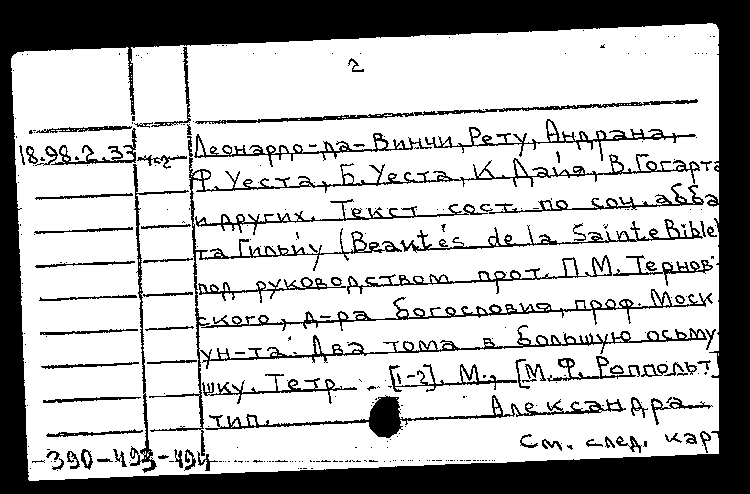 2
18.98.2.33 1-2 Леонардо-да-Винчи, Рету, Андрана,
Ф. Уеста, Б. Уеста, К. Дайя, В. Гогарта
и других. Текст сост. по соч. абба
та Гильйу (Beautés de la Sainte Bible)
под руководством прот. П.М. Тернов-
ского, д-ра богословия, проф. Моск.
ун-та. Два тома в большую осьму-
шку. Тетр. [1-2]. М., [М.Ф. Роппольт]
тип. Александра
См. след. карт
-390-493-494